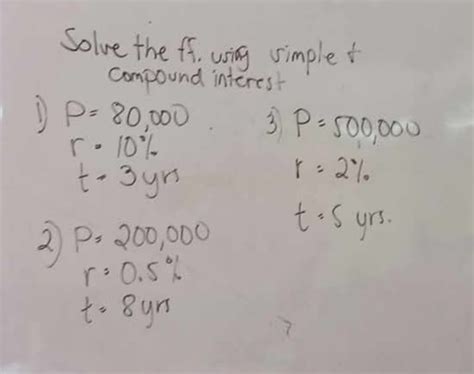 Solve the ff. using simple &
compound interest
1) P = 80,000
r = 10%
t = 3 yrs
2) P = 200,000
r = 0.5%
t = 8 yrs
3) P = 500,000
r = 2%
t = 5 yrs.